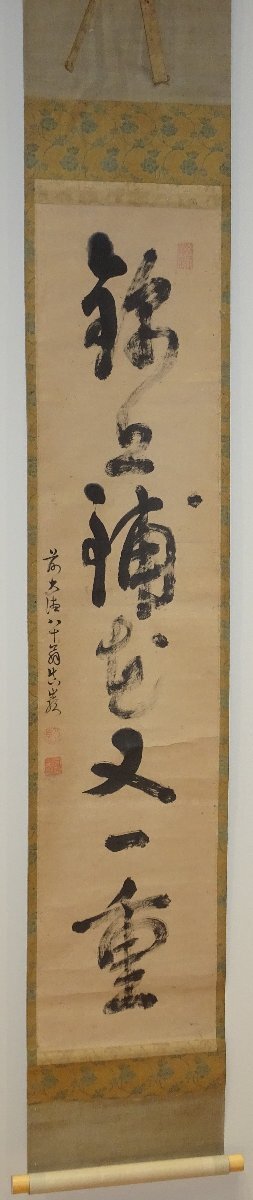 錦上鋪花又一重
前大徳八十翁巖